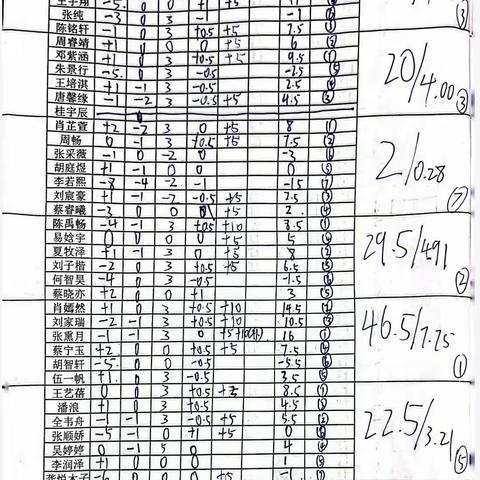 张纯 -3 0 3 -1
陈铭轩 -1 0 3 +0.5 +5 7.5 ①
周睿靖 +1 0 0 0 +5 6 ②
邓紫涵 +1 0 3 +0.5 +5 9.5 ①
朱景行 -5 0 3 -0.5 -2.5 ⑤
王培淇 +1 -1 3 -0.5 2.5 ④
唐馨缘 -1 -2 3 -0.5 +5 4.5 ③
20/4.00 ③
桂宇辰
肖芷萱 +2 -2 3 0 +5 8 ①
周畅 0 -1 3 +0.5 +5 7.5 ②
张采薇 -1 0 -2 0 -3 ⑥
胡庭煜 +1 -1 0 0 0 ⑤
李若熙 -8 -4 -2 -1 -15 ⑦
刘宸豪 +1 -1 -2 -0.5 +5 2.5 ③
蔡睿曦 -3 0 0 0 +5 2 ④
2/0.28 ⑦
陈禹畅 -4 -1 3 +0.5 +10 8.5 ①
易焓宇 0 0 0 0 +5 5 ④
夏牧泽 +1 -1 3 0 +5 8 ②
刘子楷 -2 0 3 +0.5 +5 6.5 ③
何智昊 -4 0 3 -0.5 -1.5 ⑥
蔡晓亦 +2 0 0 +1 3 ⑤
29.5/4.91 ②
肖嫣然 +1 0 3 +0.5 +10 14.5 ②
刘家瑞 -2 -1 3 +0.5 +10 10.5 ③
张熏月 -1 -1 3 0 16 ①
蔡宁玉 +2 0 0 +0.5 +5 7.5 ④
胡智轩 -5 0 0 -0.5 -5.5 ⑥
伍一帆 +1 0 3 -0.5 3.5 ⑤
46.5/7.75 ①
王艺蓓 0 0 3 +0.5 8.5 ①
潘浪 +1 0 3 +0.5 4.5 ③
全韦舟 -1 -1 3 -0.5 +5 5.5 ②
张顺娇 -5 -1 0 +1 +5 0
吴婷婷 0 -1 5 0 4 ④
李润泽 +1 0 0 0 1
22.5/3.21 ⑤